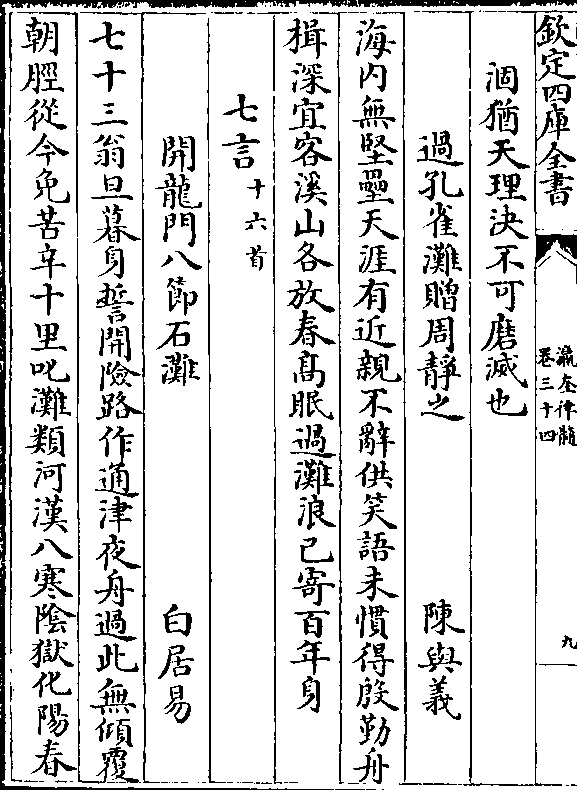 欽定四庫全書
瀛奎律髓
卷三十四
九
涸猶天理決不可磨滅也
過孔雀灘贈周靜之 陳與義
海内無堅壘天涯有近親不辭供笑語未慣得殷勤舟
楫深宜客溪山各放春髙眠過灘浪已寄百年身
七言十六首
開龍門八節石灘 白居易
七十三翁旦暮身誓開險路作通津夜舟過此無傾覆
朝脛從今免苦辛十里叱灘類河漢八寒陰獄化陽春